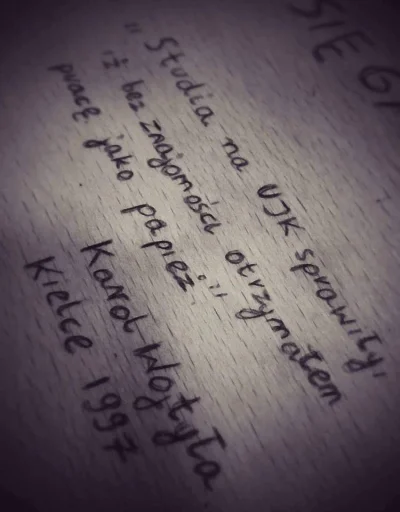 SIE
"Studia na UJK sprawiły,
iż bez znajomości otrzymałem
pracę jako papież."
Karol Wojtyła
Kielce 1997